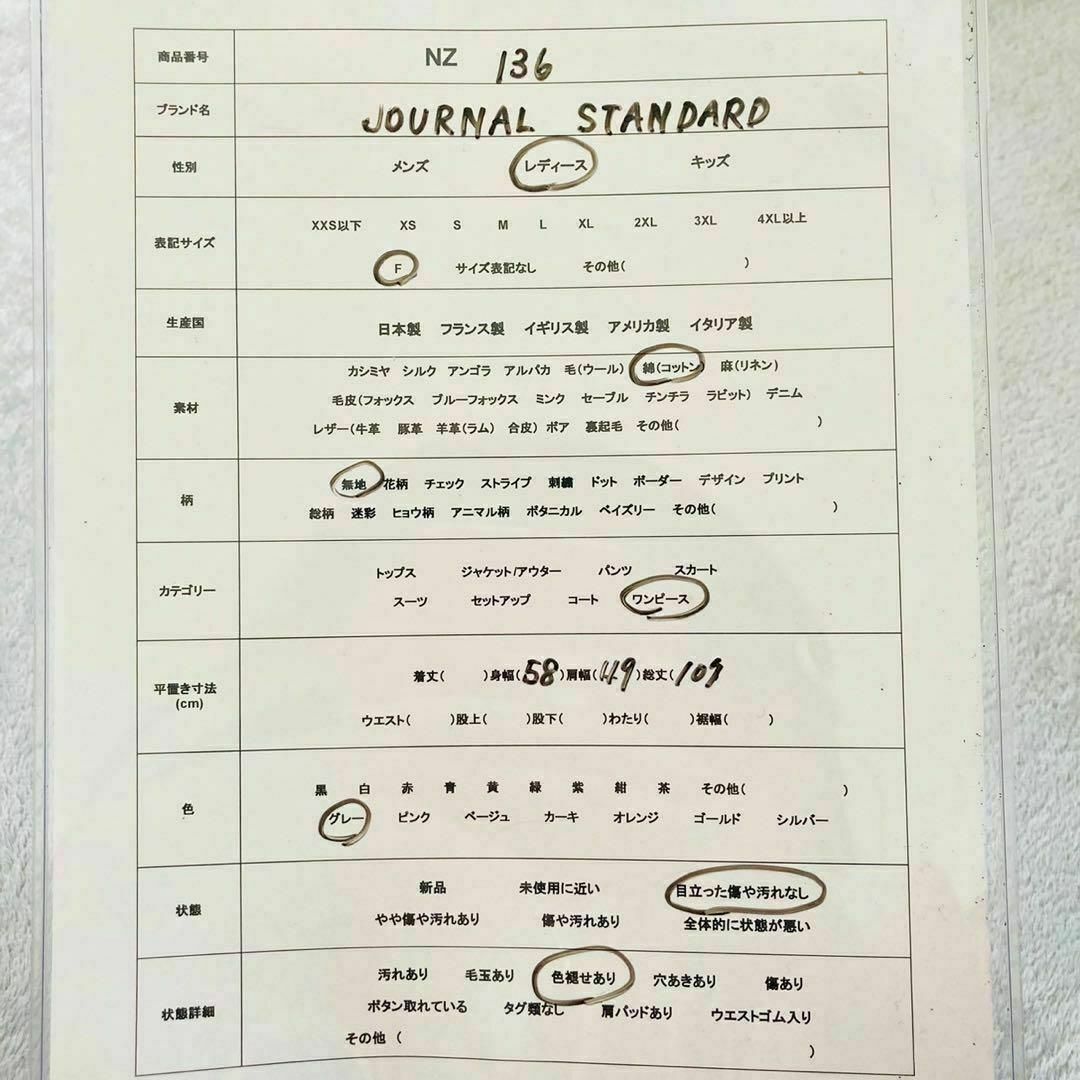 商品番号 NZ 136
ブランド名 JOURNAL STANDARD
性別 メンズ レディース キッズ
表記サイズ
XXS以下 XS S M L XL 2XL 3XL 4XL以上
F サイズ表記なし その他( )
生産国 日本製 フランス製 イギリス製 アメリカ製 イタリア製
素材
カシミヤ シルク アンゴラ アルパカ 毛(ウール) 綿(コットン) 麻(リネン)
毛皮(フォックス ブルーフォックス ミンク セーブル チンチラ ラビット) デニム
レザー(牛革 豚革 羊革(ラム) 合皮) ボア 裏起毛 その他( )
柄
無地 花柄 チェック ストライプ 刺繍 ドット ボーダー デザイン プリント
総柄 迷彩 ヒョウ柄 アニマル柄 ボタニカル ペイズリー その他( )
カテゴリー
トップス ジャケット/アウター パンツ スカート
スーツ セットアップ コート ワンピース
平置き寸法
(cm)
着丈( )身幅(58)肩幅(49)総丈(109
ウエスト( )股上( )股下( )わたり( )裾幅( )
色
黒 白 赤 青 黄 緑 紫 紺 茶 その他( )
グレー ピンク ベージュ カーキ オレンジ ゴールド シルバー
状態
新品 未使用に近い 目立った傷や汚れなし
やや傷や汚れあり 傷や汚れあり 全体的に状態が悪い
状態詳細
汚れあり 毛玉あり 色褪せあり 穴あきあり 傷あり
ボタン取れている タグ類なし 肩パッドあり ウエストゴム入り
その他 ( )